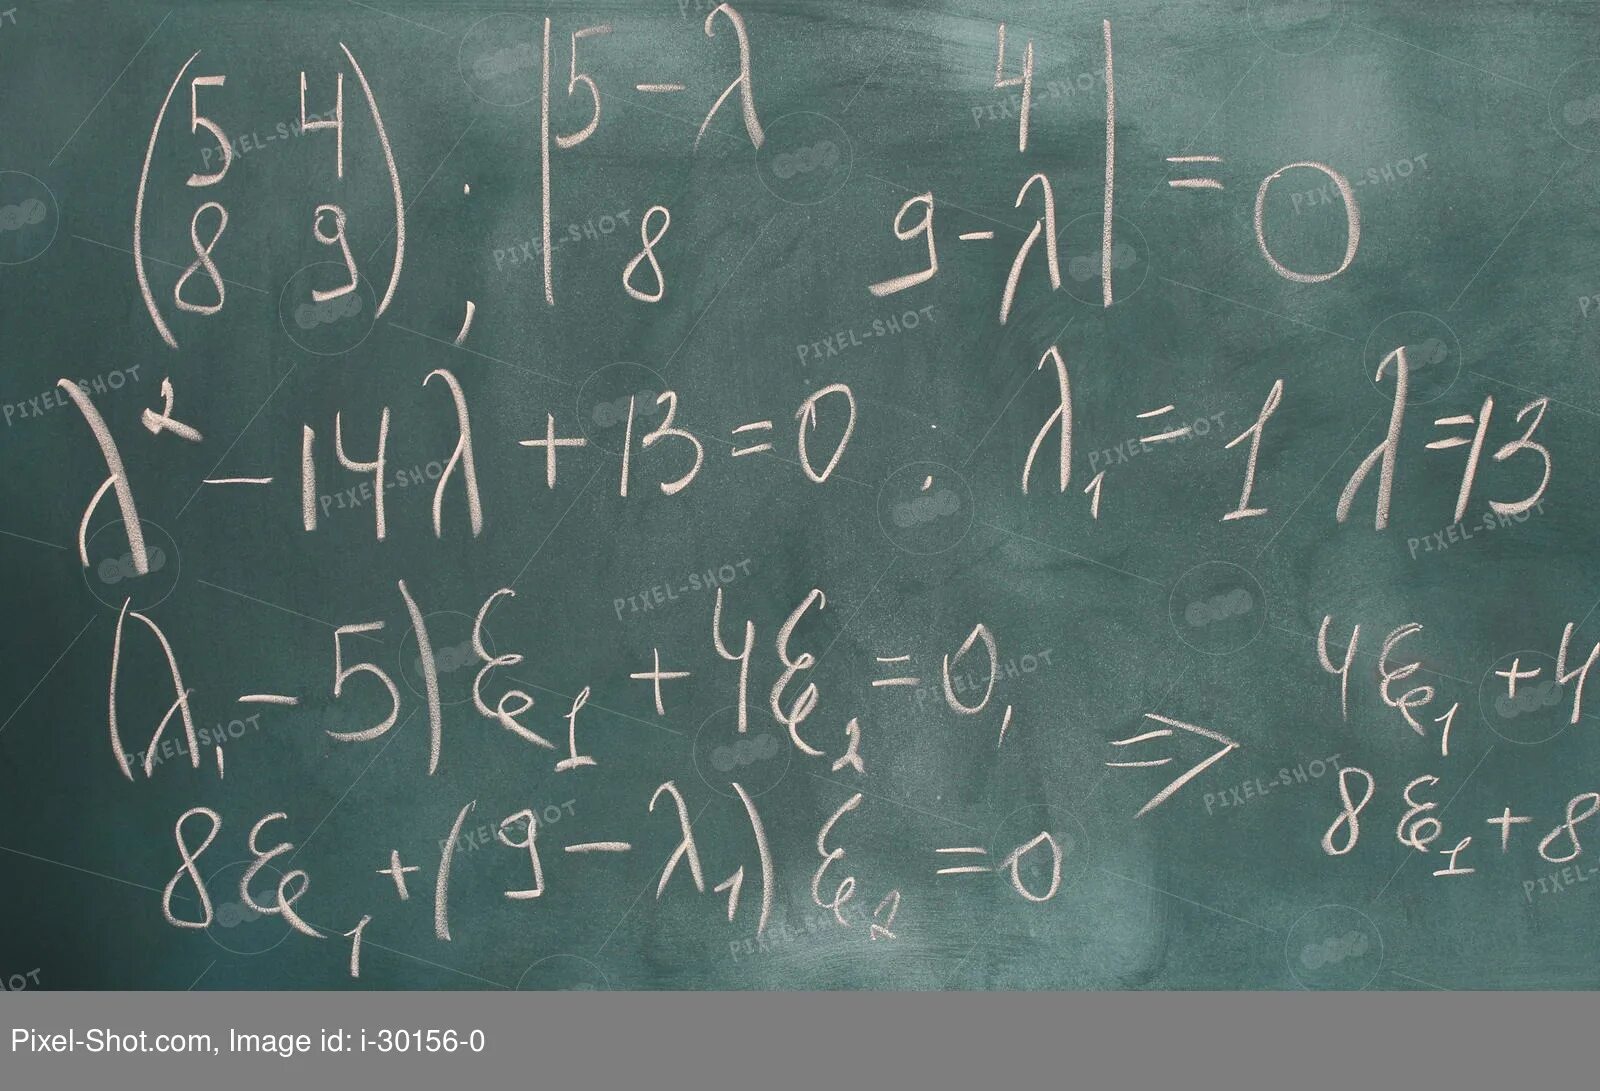 (5 4
8 9), |5 - λ 4
8 9 - λ| = 0
λ² - 14λ + 13 = 0. λ₁ = 1 λ = 13
(λ₁ - 5)ξ₁ + 4ξ₂ = 0, ⇒ 4ξ₁ + 4
8ξ₁ + (9 - λ₁)ξ₂ = 0 8ξ₁ + 8
Pixel-Shot.com, Image id: i-30156-0